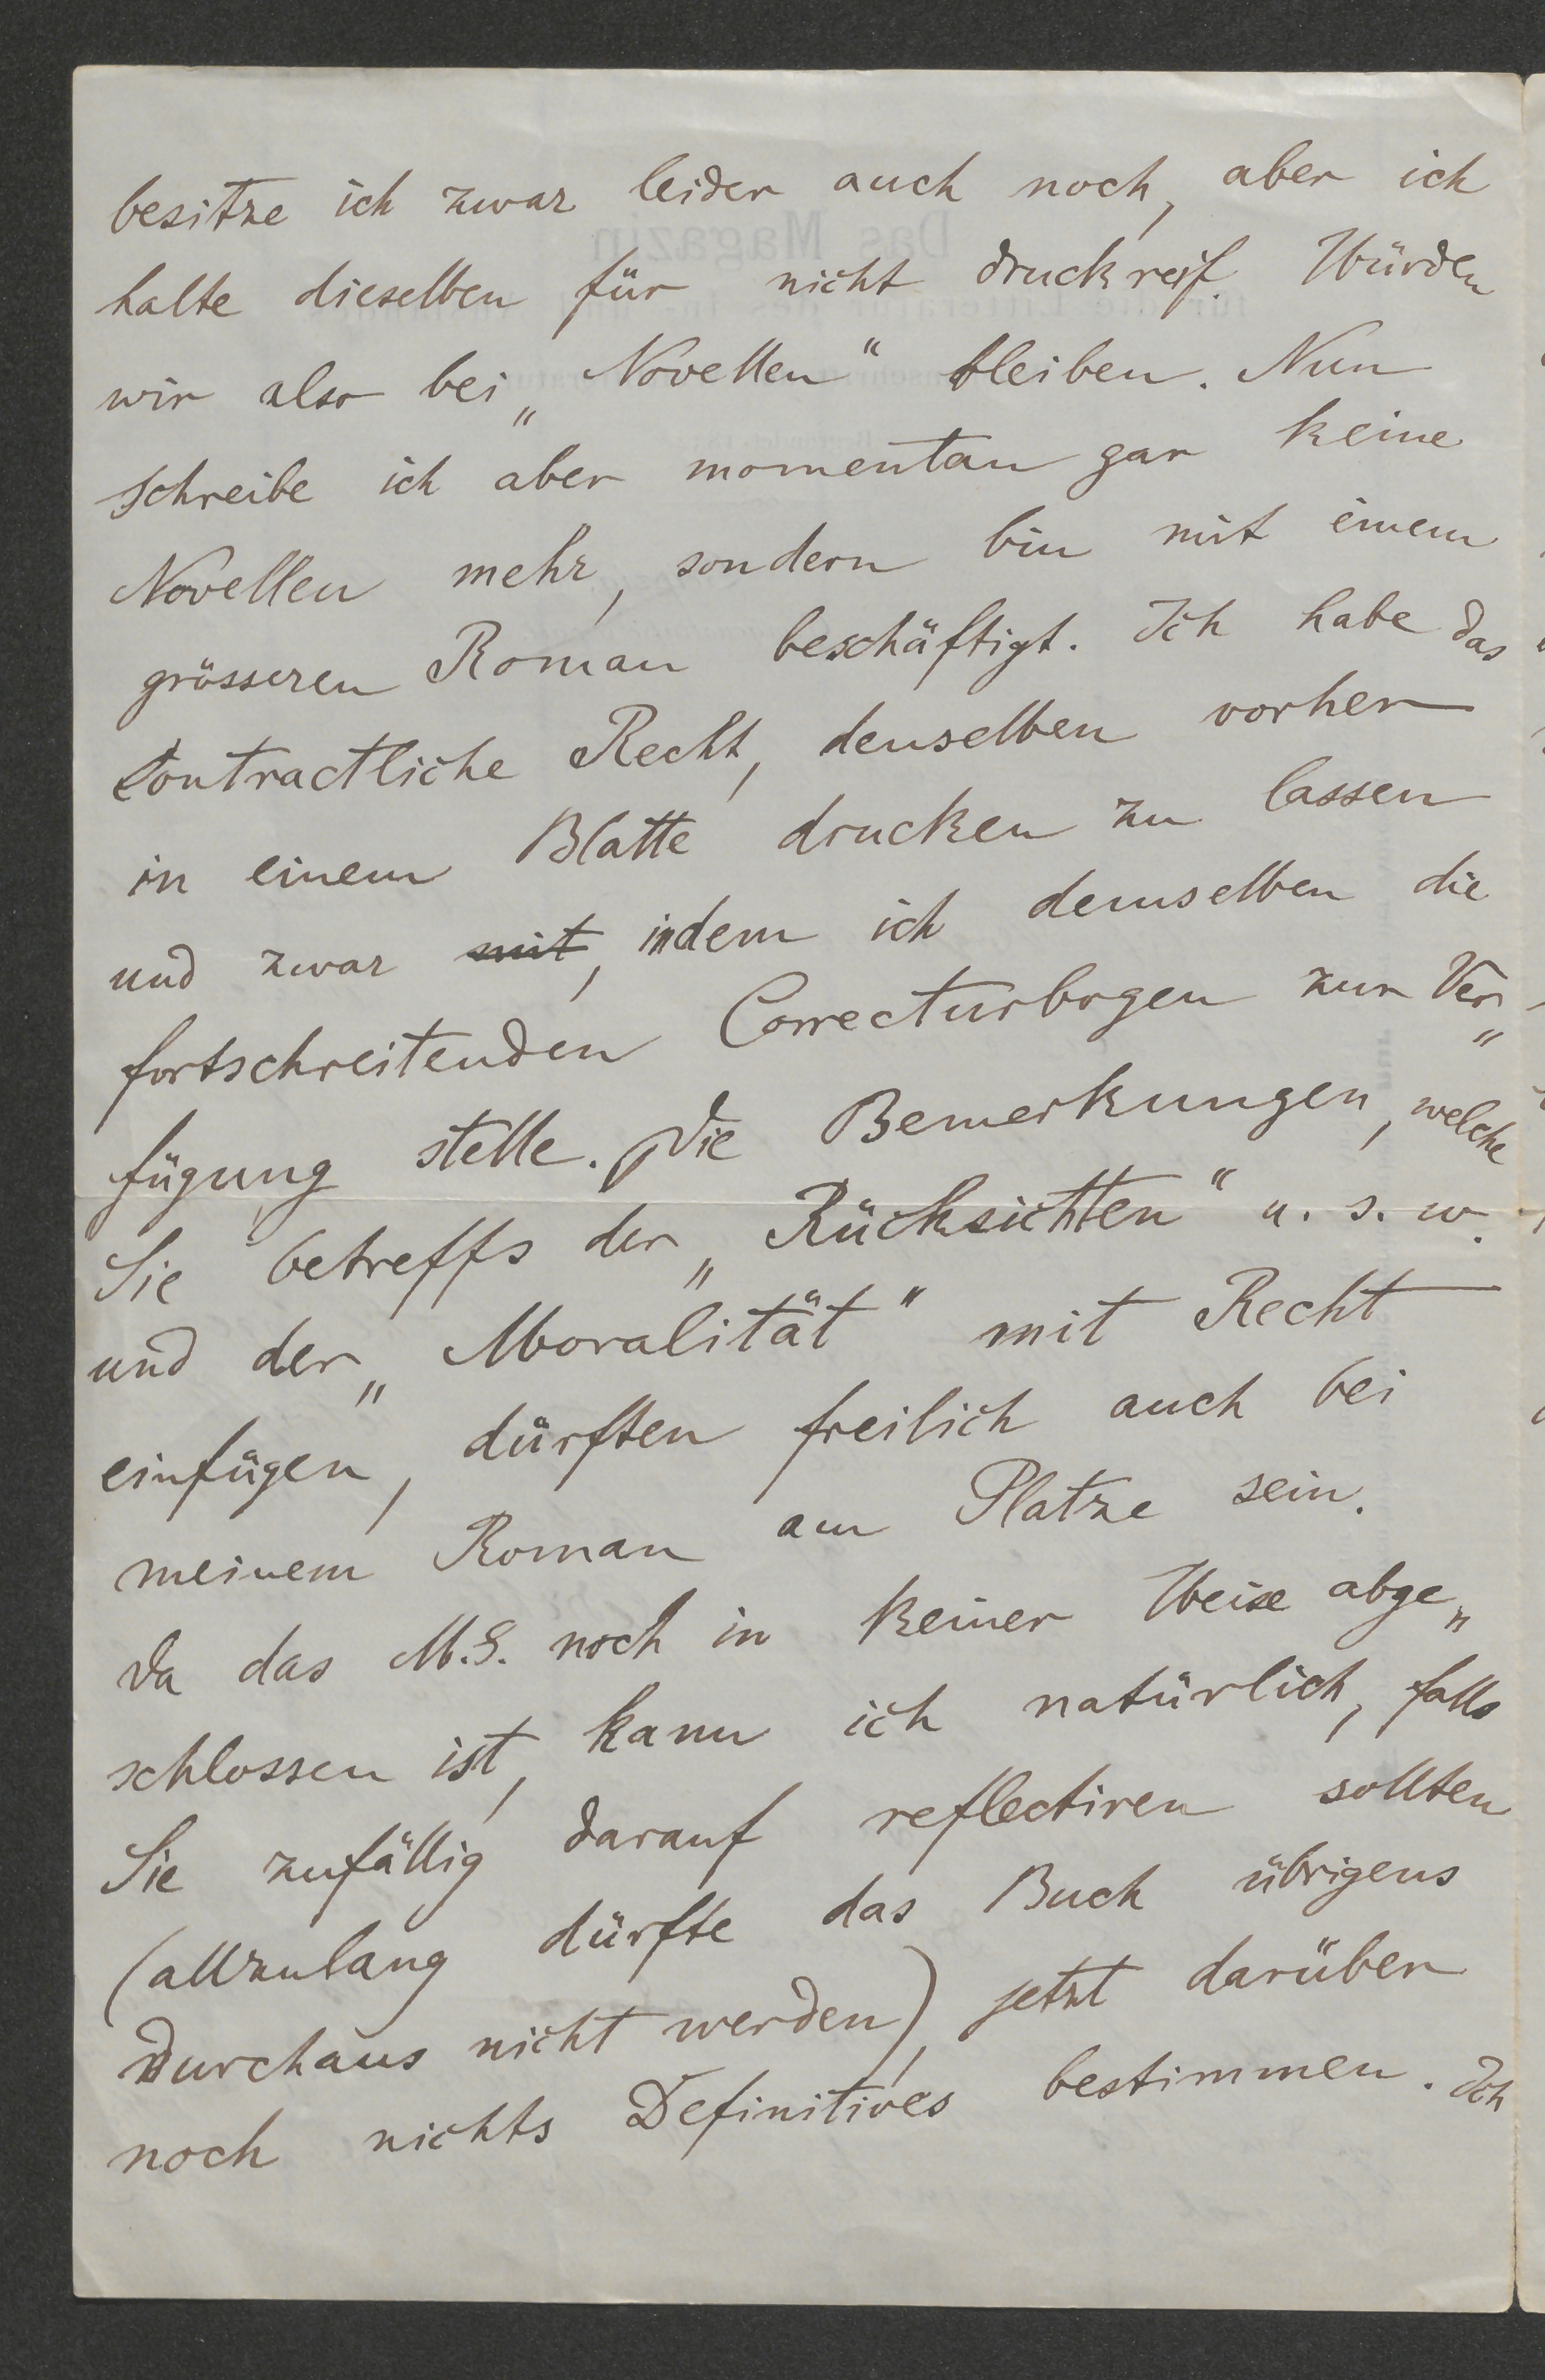 besitze ich zwar leider auch noch, aber ich
halte dieselben für nicht druckreif. Würden
wir also bei „Novellen“ bleiben. Nun
schreibe ich aber momentan gar keine
Novellen mehr, sondern bin mit einem
grösseren Roman beschäftigt. Ich habe das
contractliche Recht, denselben vorher
in einem Blatte drucken zu lassen
und zwar mit, indem ich demselben die
fortschreitenden Correcturbogen zur Ver„
fügung stelle. Die Bemerkungen, welche
Sie betreffs der „Rücksichten“ u. s. w.
und der „Moralität“ mit Recht
einfügen, dürften freilich auch bei
meinem Roman am Platze sein.
Da das M.S. noch in keiner Weise abge„
schlossen ist, kann ich natürlich, falls
Sie zufällig darauf reflectiren sollten
(allzulang dürfte das Buch übrigens
durchaus nicht werden), jetzt darüber
noch nichts Definitives bestimmen. Ich